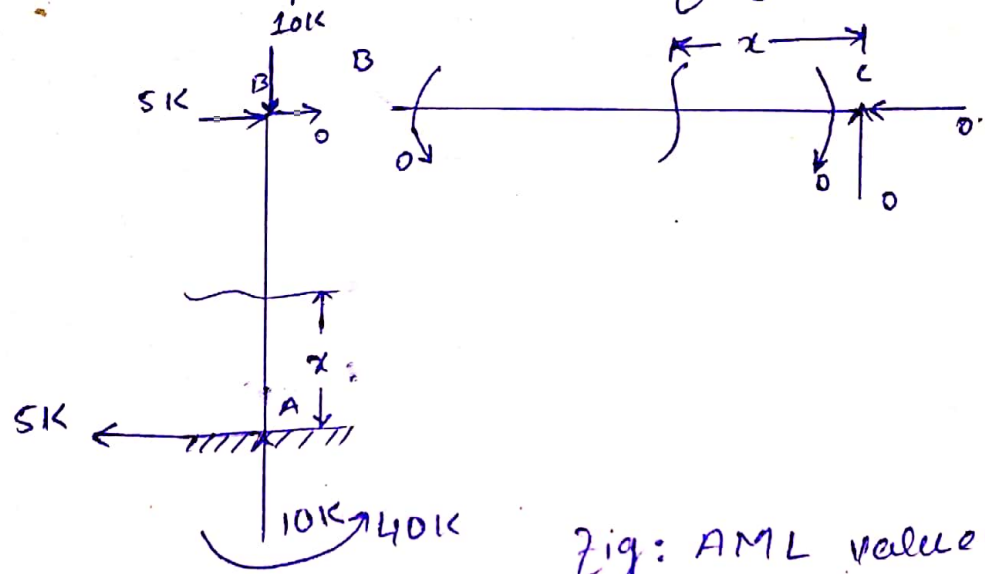 10K
B
x
5K
B
C
0
0
0
0.
0
x
A
5K
10K 40K
Fig: AML value